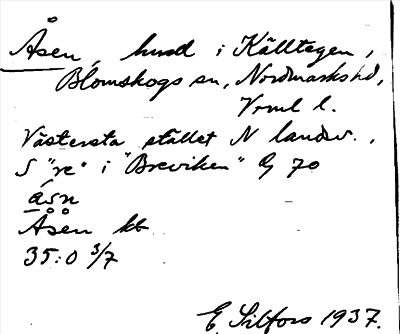 Åsen, hmd i Källtegen,
Blomskogs sn, Nordmarks hd,
Vrml l.
Västersta stället N landsv.,
S "re" i "Breviken" Bj 70
åsn
Åsen kb
35:0 3/7
E. Silfors 1937.